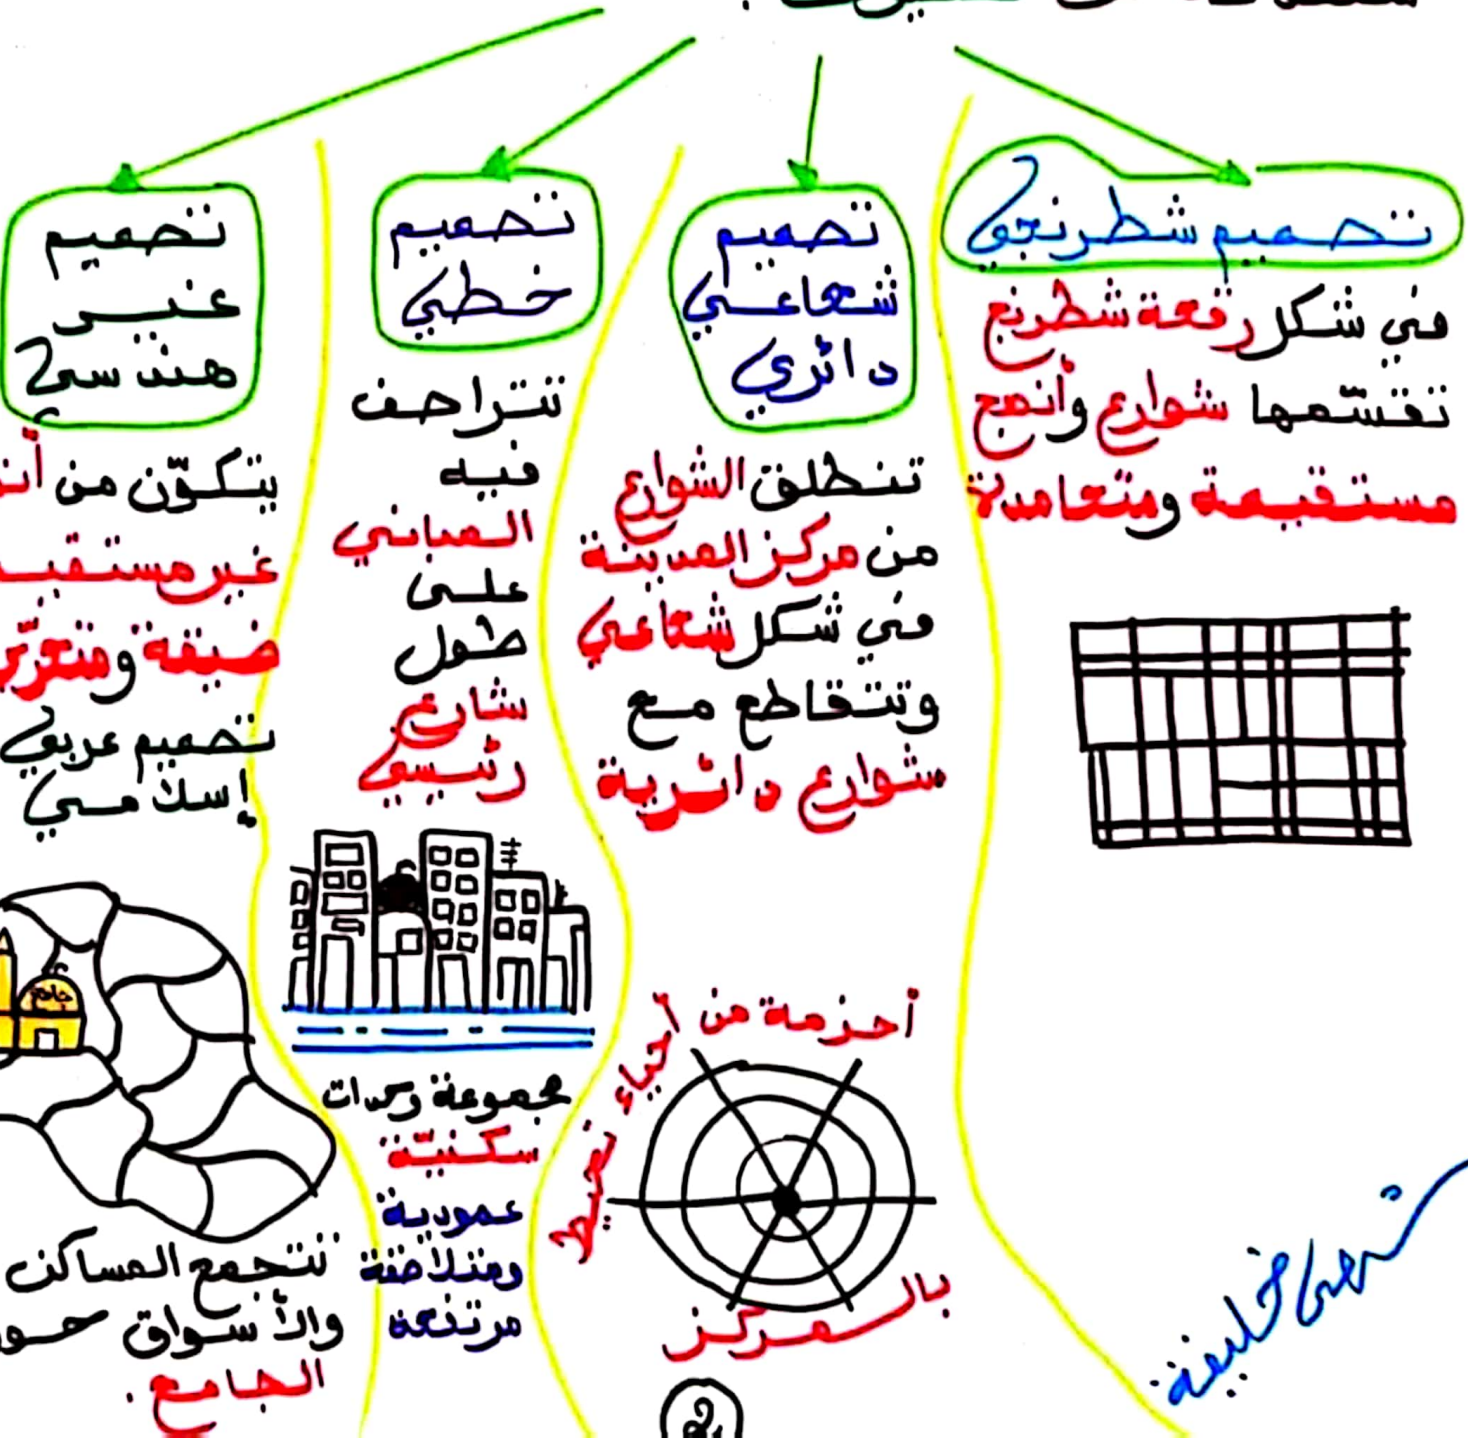 تصميم شطرنجي
في شكل رقعة شطرنج
تقسّمها شوارع وأنهج
مستقيمة ومتعامدة
تصميم
شعاعي
دائري
تنطلق الشوارع
من مركز المدينة
في شكل شعاعي
وتتقاطع مع
شوارع دائرية
أحزمة من أحياء تحيط
بالمركز
تصميم
خطي
تتراصف
فيه
المباني
على
طول
شارع
رئيسي
مجموعة وحدات
سكنيّة
عمودية
ومتلاصقة
مرتفعة
تصميم
غير
هندسي
يتكوّن من
غير مستقيم
ضيقة
تصميم عربي
إسلامي
جامع
تتجمع المساكن
والأسواق
الجامع.
2